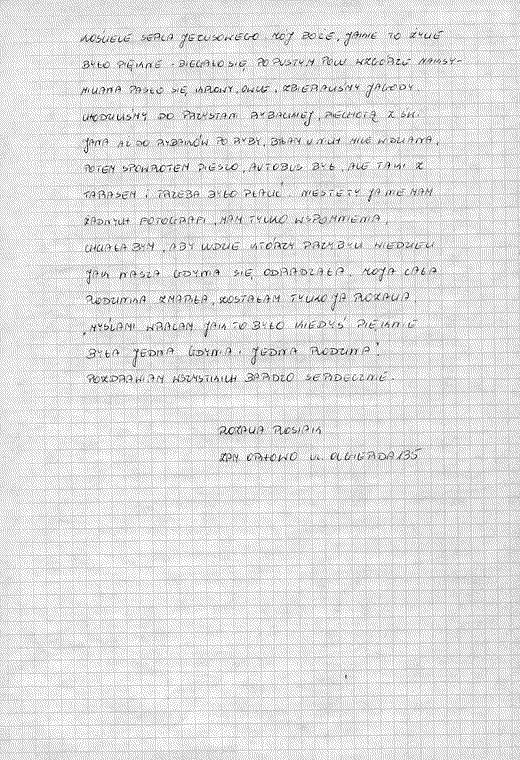 KOŚCIELE SERCA JEZUSOWEGO. MÓJ BOŻE, JAKIE TO ŻYCIE
BYŁO PIĘKNE - BIEGAŁO SIĘ PO PUSTYM POLU WZGÓRZE MAKSY-
MILIANA PASŁO SIĘ KROWY, OWCE, ZBIERALIŚMY JAGODY.
CHODZILIŚMY DO PRZYSTANI RYBACKIEJ, PIECHOTĄ Z ŚW.
JANA AŻ DO RYBAKÓW PO RYBY, BYŁAM U NICH MILE WIDZIANA,
POTEM SPOWROTEM PIESZO, AUTOBUS BYŁ, ALE TAKI Z
TARASEM I TRZEBA BYŁO PŁACIĆ. NIESTETY JA NIE MAM
ŻADNYCH FOTOGRAFI, MAM TYLKO WSPOMNIENIA,
CHCIAŁABYM, ABY LUDZIE KTÓRZY PRZYBYLI WIEDZIELI
JAK NASZA GDYNIA SIĘ ODRADZAŁA. MOJA CAŁA
RODZINA ZMARŁA, ZOSTAŁAM TYLKO JA ROZALIA,
"MYŚLAMI WRACAM JAK TO BYŁO KIEDYŚ PIĘKNIE
BYŁA JEDNA GDYNIA I JEDNA RODZINA".
POZDRAWIAM WSZYSTKICH BARDZO SERDECZNIE.
ROZALIA
ZAM ORŁOWO UL. OLGIERDA 135